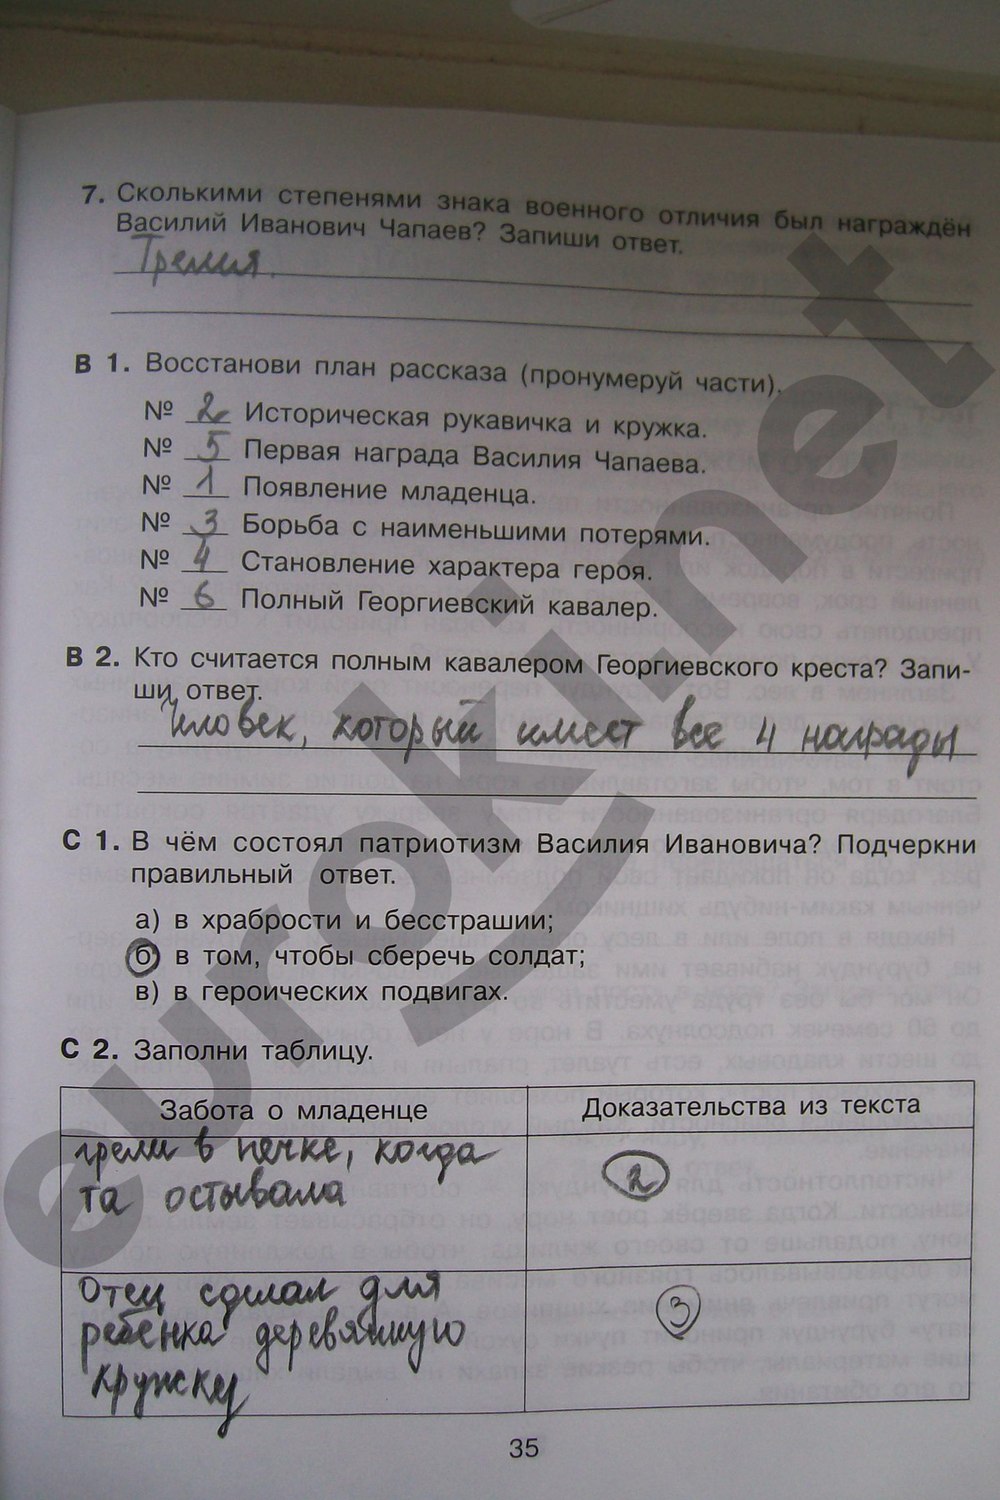 7. Сколькими степенями знака военного отличия был награждён
Василий Иванович Чапаев? Запиши ответ.
Тремя.
В 1. Восстанови план рассказа (пронумеруй части).
№ 2 Историческая рукавичка и кружка.
№ 5 Первая награда Василия Чапаева.
№ 1 Появление младенца.
№ 3 Борьба с наименьшими потерями.
№ 4 Становление характера героя.
№ 6 Полный Георгиевский кавалер.
В 2. Кто считается полным кавалером Георгиевского креста? Запи-
ши ответ.
Человек, который имеет все 4 награды
С 1. В чём состоял патриотизм Василия Ивановича? Подчеркни
правильный ответ.
а) в храбрости и бесстрашии;
б) в том, чтобы сберечь солдат;
в) в героических подвигах.
С 2. Заполни таблицу.
Забота о младенце
Доказательства из текста
грели в печке, когда
та остывала
2
Отец сделал для
ребенка деревянную
кружку
3
35
euroki.net